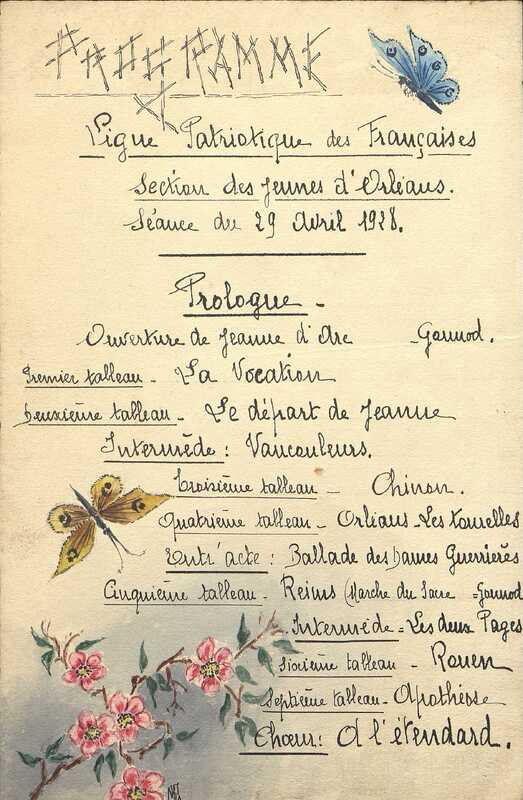 PROGRAMME
Ligue Patriotique des Françaises
Section des Jeunes d'Orléans.
Séance du 29 Avril 1928.
Prologue -
Ouverture de Jeanne d'Arc - Gounod.
Premier tableau - La Vocation
Deuxième tableau - Le départ de Jeanne
Intermède : Vaucouleurs.
Troisième tableau - Chinon.
Quatrième tableau - Orléans - Les tourelles
Entr'acte : Ballade des Dames Guerrières
Cinquième tableau - Reims (Marche du Sacre - Gounod
Intermède - Les deux Pages
Sixième tableau - Rouen
Septième tableau - Apothéose
Chœur : A l'étendard.